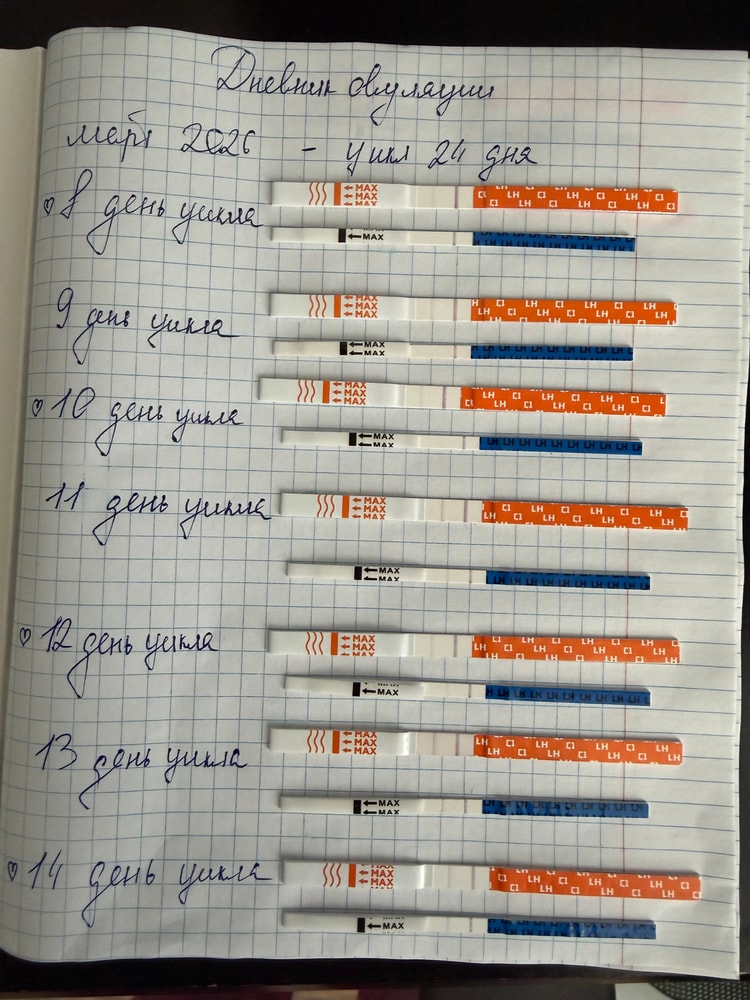 Дневник овуляции
март 2026 - цикл 24 дня
♡ 8 день цикла
←MAX
←MAX
←MAX
LH CI LH CI LH CI
←MAX
9 день цикла
←MAX
←MAX
←MAX
LH CI LH CI LH CI LH
←MAX
♡ 10 день цикла
←MAX
←MAX
←MAX
LH CI LH CI LH CI
←MAX
11 день цикла
←MAX
←MAX
←MAX
CI LH CI LH CI LH CI
←MAX
♡ 12 день цикла
←MAX
←MAX
←MAX
LH CI LH CI LH CI LH
←MAX
13 день цикла
←MAX
←MAX
←MAX
LH CI LH CI LH CI LH
←MAX
♡ 14 день цикла
←MAX
←MAX
←MAX
CI LH CI LH CI LH CI
←MAX